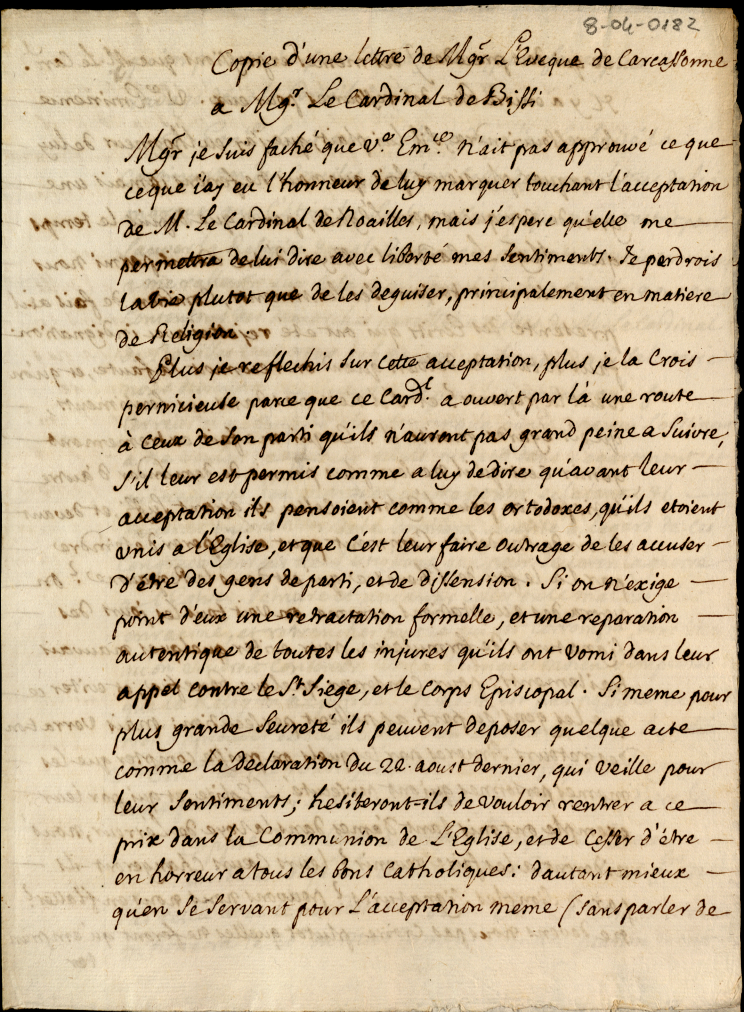 8-04-0182
Copie d'une lettre de Mgr L'Eveque de Carcassonne
a Mgr Le Cardinal de Bissi
Mgr je suis faché que v.e Em.ce n'ait pas approuvé ce que
ceque j'ay eu l'honneur de luy marquer touchant l'acceptation
de M. Le Cardinal de Noailles, mais j'espere qu'elle me
permettra de lui dire avec liberté mes sentiments. Je perdrois
la vie plutot que de les deguiser, principalement en matiere
de Religion.
Plus je reflechis sur cette acceptation, plus je la Crois
pernicieuse parce que ce Card.l a ouvert par là une route
à ceux de son parti qu'ils n'auront pas grand peine a Suivre,
s'il leur est permis comme a luy de dire qu'avant leur
acceptation ils pensoient comme les ortodoxes, qu'ils etoient
unis a l'Eglise, et que c'est leur faire outrage de les accuser
d'étre des gens de parti, et de dissension. Si on n'exige
point d'eux une retractation formelle, et une reparation
autentique de toutes les injures qu'ils ont vomi dans leur
appel contre le St Siege, et le Corps Episcopal. Si meme pour
plus grande seureté ils peuvent deposer quelque acte
comme la declaration du 22. aoust dernier, qui veille pour
leur sentiments; hesiteront-ils de vouloir rentrer a ce
prix dans la Communion de L'Eglise, et de Cesser d'étre
en horreur a tous les bons Catholiques: dautant mieux
qu'en se servant pour L'acceptation meme (sans parler de